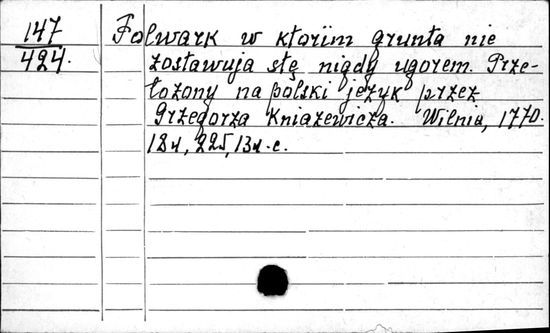 147
424.
Folwark w ktoriim grunta nie
zostawuja słę nigdy ugorem. Prze-
łożony na polski język przez
Grzegorza Kniazewicza. Wilnia, 1770.
18н, 225, 13н.с.